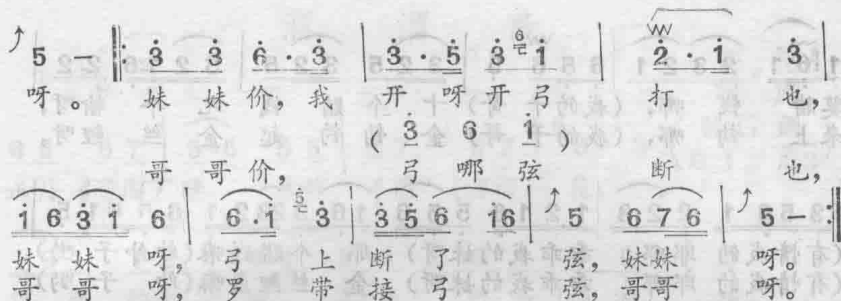 5 — ‖: 3̇ 3̇ 6̇ · 3̇ | 3̇ · 5̇ 3̇ 6 1̇ | 2̇ · 1̇ 3̇ |
呀。 妹 妹 价, 我 开 呀 开 弓 打 也,
( 3̇ 6 1̇ )
哥 哥 价, 弓 哪 弦 断 也,
1̇ 6 3̇ 1̇ 6 | 6 · 1̇ 5̇ 3̇ | 3̇ 5 6 1̇6 | 5 6 7 6 | 5 — :‖
妹 妹 呀, 弓 上 断 了 弦, 妹妹 呀。
哥 哥 呀, 罗 带 接 弓 弦, 哥哥 呀。